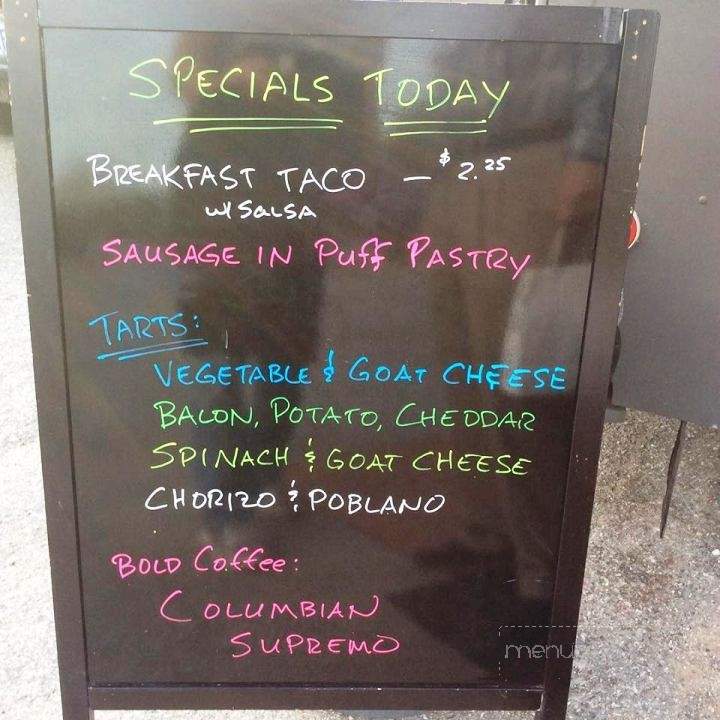 SPECIALS TODAY
BREAKFAST TACO — $2.25
w/ SALSA
SAUSAGE IN PUFF PASTRY
TARTS:
VEGETABLE & GOAT CHEESE
BACON, POTATO, CHEDDAR
SPINACH & GOAT CHEESE
CHORIZO & POBLANO
BOLD Coffee:
COLUMBIAN
SUPREMO
menu